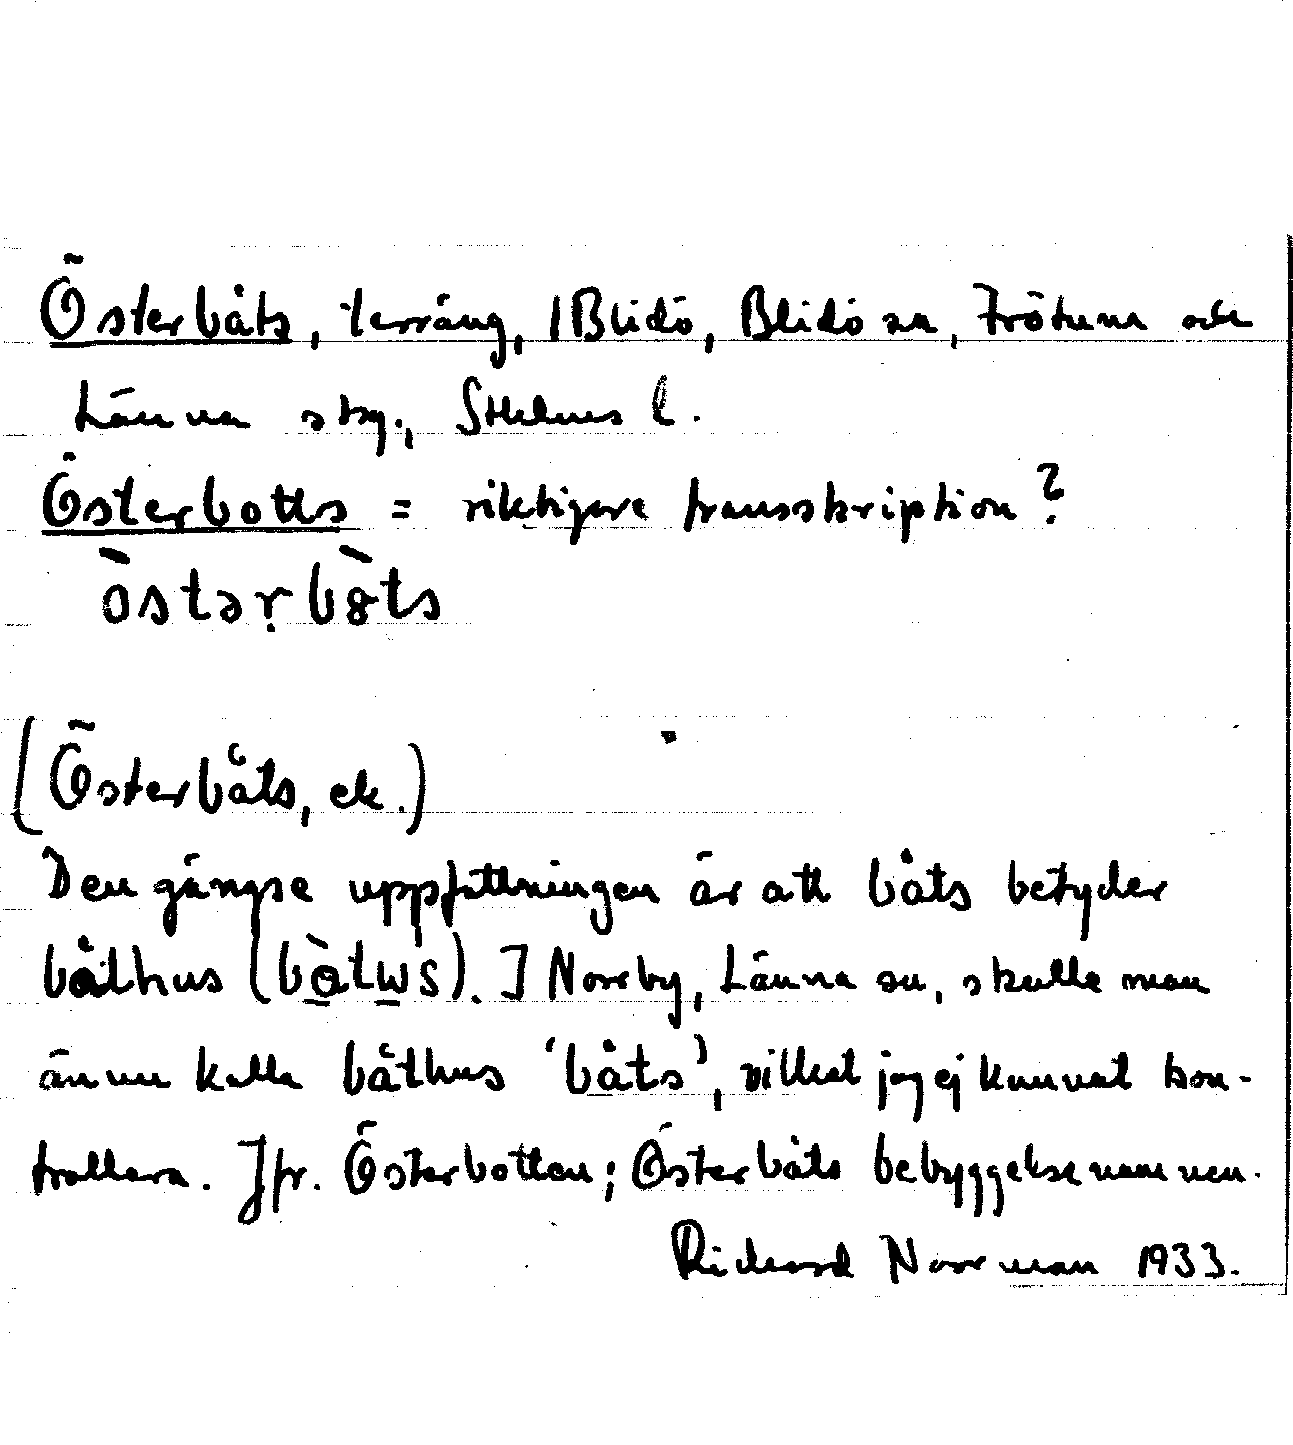 Österbåts, terräng, /Blidö, Blidö sn, Frötuna och
Länna skg., Sthlms l.
Österbotts = riktigare transskription?
òstər̥bòts
(Österbåts, etc.)
Den gängse uppfattningen är att båts betyder
båthus (bòtws). I Norrby, Länna sn, skulle man
ännu kalla båthus 'båts', vilket jag ej kunnat kon-
trollera. Jfr. Österbotten; Österbåts bebyggelsenamnen.
Richard Norrman 1933.